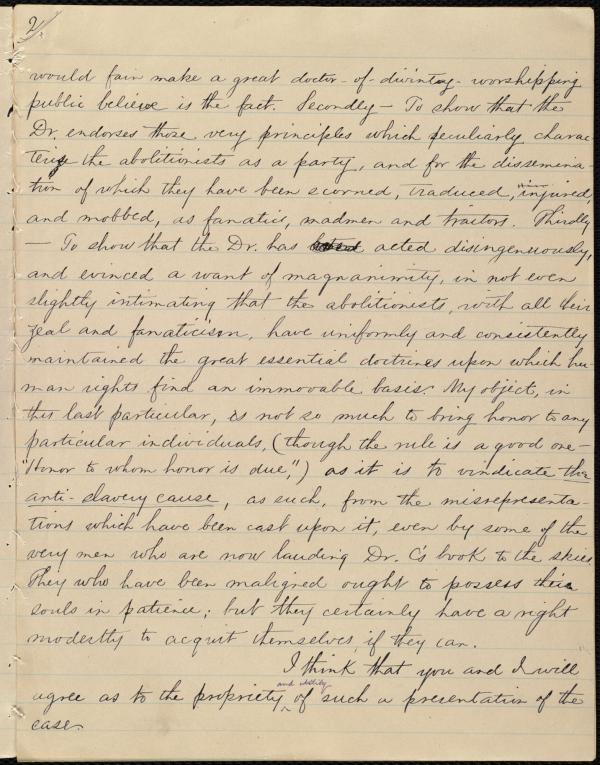 2.
would fain make a great doctor-of-divinity-worshipping
public believe is the fact. Secondly — To show that the
Dr. endorses those very principles which peculiarly charac-
terize the abolitionists as a party, and for the dissemina-
tion of which they have been scorned, traduced, injured,
and mobbed, as fanatics, madmen and traitors. Thirdly
— To show that the Dr. has acted disingenuously,
and evinced a want of magnanimity, in not even
slightly intimating that the abolitionists, with all their
zeal and fanaticism, have uniformly and consistently
maintained the great essential doctrines upon which hu-
man rights find an immovable basis. My object, in
this last particular, is not so much to bring honor to any
particular individuals, (though the rule is a good one —
"Honor to whom honor is due,") as it is to vindicate the
anti-slavery cause, as such, from the misrepresenta-
tions which have been cast upon it, even by some of the
very men who are now lauding Dr. C's book to the skies.
They who have been maligned ought to possess their
souls in patience; but they certainly have a right
modestly to acquit themselves, if they can.
I think that you and I will
agree as to the propriety and utility of such a presentation of the
case.